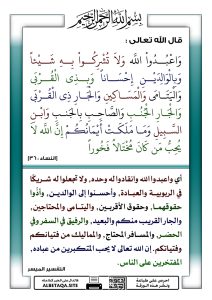 بسم الله الرحمن الرحيم
قال الله تعالى :
وَاعْبُدُوا اللَّهَ وَلَا تُشْرِكُوا بِهِ شَيْئًا
وَبِالْوَالِدَيْنِ إِحْسَانًا وَبِذِي الْقُرْبَى
وَالْيَتَامَى وَالْمَسَاكِينِ وَالْجَارِ ذِي الْقُرْبَى
وَالْجَارِ الْجُنُبِ وَالصَّاحِبِ بِالْجَنْبِ وَابْنِ
السَّبِيلِ وَمَا مَلَكَتْ أَيْمَانُكُمْ إِنَّ اللَّهَ لَا
يُحِبُّ مَن كَانَ مُخْتَالًا فَخُورًا
[النساء : ٣٦]
أي واعبدوا الله وانقادوا له وحده، ولا تجعلوا له شريكًا
في الربوبية والعبادة، وأحسنوا إلى الوالدين، وأدُّوا
حقوقهما، وحقوق الأقربين، واليتامى والمحتاجين،
والجار القريب منكم والبعيد، والرفيق في السفر وفي
الحضر، والمسافر المحتاج، والمماليك من فتيانكم
وفتياتكم. إن الله تعالى لا يحب المتكبرين من عباده،
المفتخرين على الناس.
التفسير الميسر
ALBETAQA.SITE